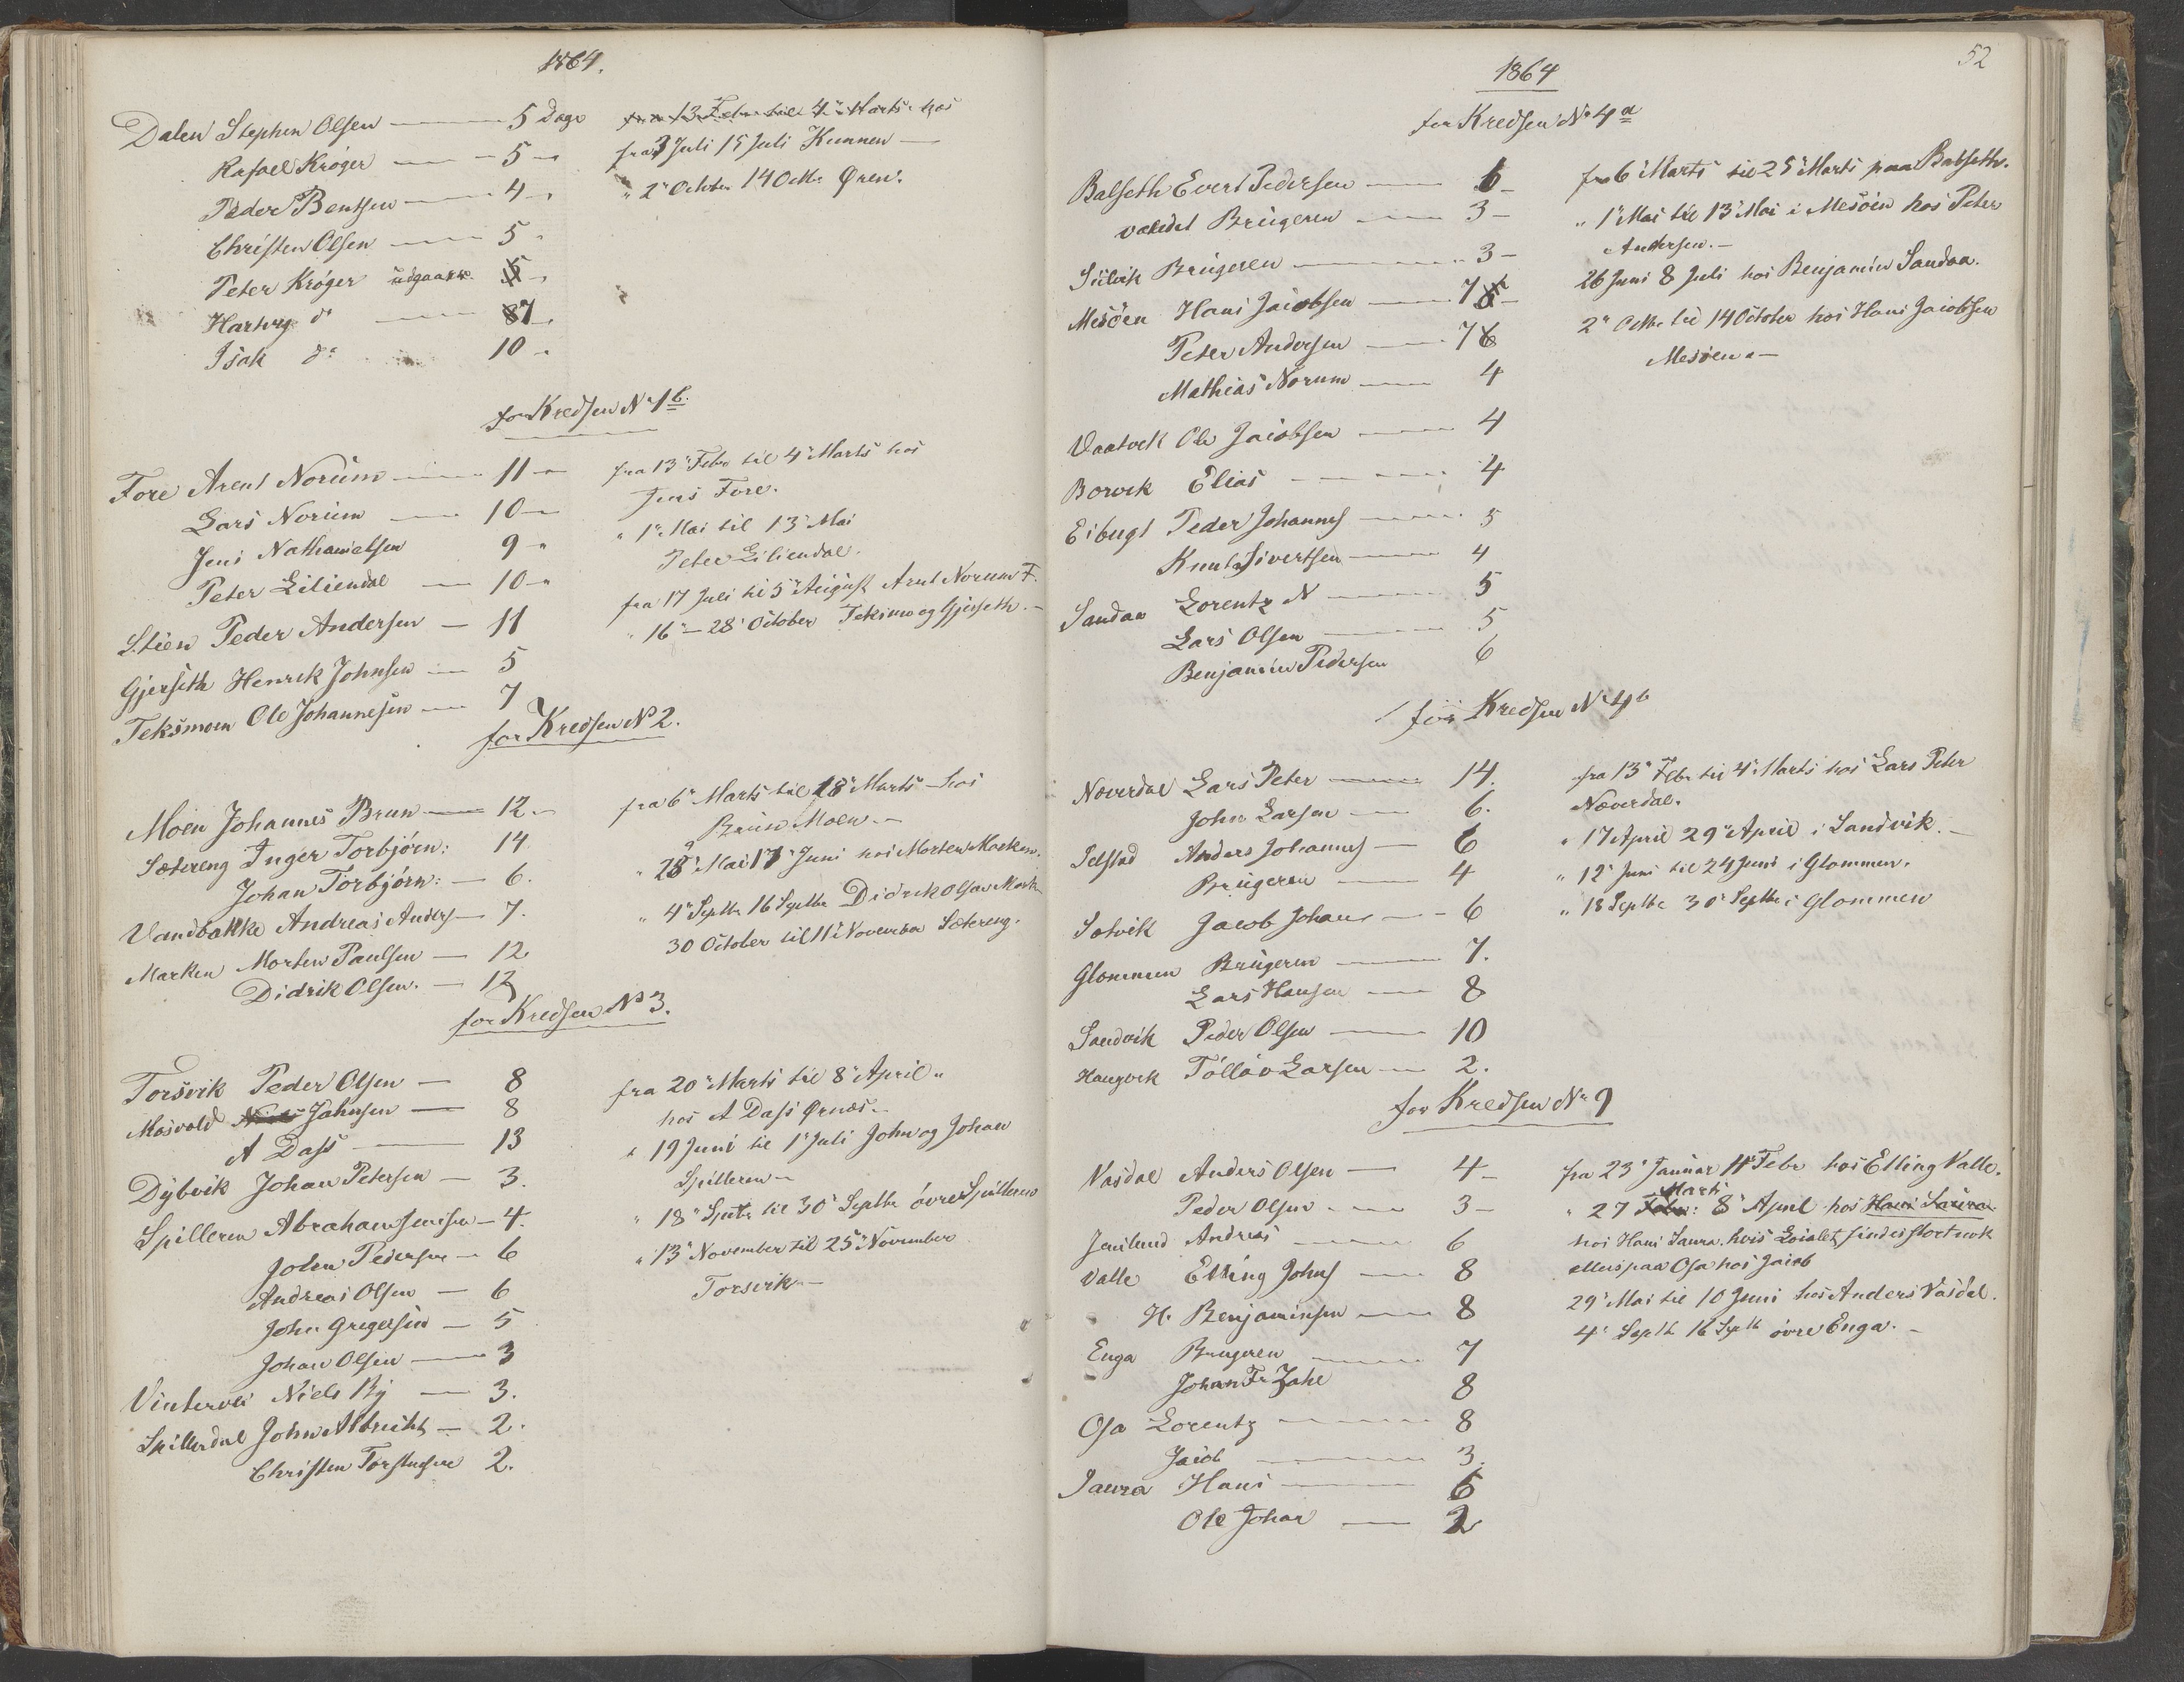 1864.
Dalen Stephen Olsen — 5 Dage fra 13 Febr til 4" Marts hos
Rafael Kröger — 5 — fra 3 Juli 15 Juli Kunnen —
Peder Bentsen — 4 — " 2" Octobr 14 Octbr Ørnes.
Christen Olsen — 5 "
Peter Kröger udgaaer 5 "
Hartvig do — 87 "
Isak do 10 "
for Kredsen No 1 b.
Fore Arent Norum — 11 — fra 13" Febr til 4" Marts hos
Lars Norum — 10 — Jens Fore.
Jens Nathanielsen 9 " " 1" Mai til 13" Mai
Peter Liliendal — 10 " Peter Liliendal.
Stien Peder Andersen — 11 fra 17 Juli til 5" August Arnt Norum F.
Gjerseth Henrik Johnsen — 5 " 16" — 28" October Teksmo og Gjerseth. —
Teksmoen Ole Johannesen — 7
for Kredsen No 2.
Moen Johannes Brun — 12 — fra 6" Marts til 18" Marts hos
Sætereng Inger Torbjörn: 14 Brun Moen. —
Johan Torbjörn: — 6. " 28" Mai 17" Juni hos Morten Marken.
Vandbakke Andreas Anders — 7. " 4" Septbr 16 Septbr Didrik Olsen Marken
Marken Morten Paulsen — 12 30 October til 11" November Sætereng.
Didrik Olsen. — 12
for Kredsen No 3.
Torsvik Peder Olsen — 8 fra 20" Marts til 8" April "
Mosvold Niels Johnsen — 8 hos A Dass Ørnæs.
A Dass — 13 " 19 Juni til 1" Juli John og Johan
Dybvik Johan Petersen — 3. Spilleren —
Spilleren Abraham Jensen — 4. " 18" Septr til 30" Septbr övre Spilleren
John Pedersen — 6 " 13" November til 25" November
Andreas Olsen — 6 Torsvik —
John Gregersen — 5
Johan Olsen — 3
Vintervei Niels By — 3.
Spillerdal John Albricht — 2.
Christen Torstensen 2.
52
1864
for Kredsen No 4 a
Balseth Evert Pedersen — 6 — fra 6" Marts til 25" Marts paa Balseth.
vakedet Brugeren — 3 — " 1" Mai til 13" Mai i Mesöen hos Peter
Andersen. —
Selvik Brugeren — 3 — 26 Juni 8 Juli hos Benjamin Sandaa.
Mesöen Hans Jacobsen — 7 8 — 2" Octbr til 14 October hos Hans Jacobsen
Peter Andersen — 7 6 Mesöen. —
Mathias Norum — 4
Vaatvik Ole Jacobsen — 4
Borvik Elias — 4
Eibugt Peder Johannes — 5
Knut Sivertsen — 4
Sandaa Lorentz N — 5
Lars Olsen — 5
Benjamin Pedersen 6
for Kredsen No 4 b
Næverdal Lars Peter — 14. fra 13" Febr til 4" Marts hos Lars Peter
John Larsen — 6. Næverdal.
Selstad Anders Johannes — 6 " 17 April 29" April i Sandvik. —
Brugeren — 4 " 12" Juni til 24 Juni i Glommen.
Setvik Jacob Johans — 6 " 18 Septbr 30" Septbr i Glommen
Glommen Brugeren — 7.
Lars Hansen — 8
Sandvik Peder Olsen — 10
Haugvik Tolløv Larsen — 2.
for Kredsen No 9
Vasdal Anders Olsen — 4 — fra 23" Januar 11" Febr hos Elling Valle.
Marts
Peder Olsen — 3 — " 27 Febr: 8" April hos Hans Saura
Andreas — 6 hos Hans Saura. hvis Localet findes stort nok
Valle Elling Johns — 8 ellers paa Osa hos Jacob
H. Benjaminsen — 8 29" Mai til 10 Juni hos Anders Vasdal.
Enga Brugeren — 7 4" Septb 16 Septb övre Enga. —
Johan Fr Zahl 8
Osa Lorentz — 8
Jacob — 3.
Saura Hans — 6
Ole Johan — 2